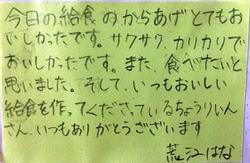 今日の給食のからあげとてもお
いしかったです。サクサク、カリカリで
おいしかったです。また、食べたいと
思いました。そして、いつもおいしい
給食を作ってくださっているちょうりいん
さん、いつもありがとうございます
荒江はな